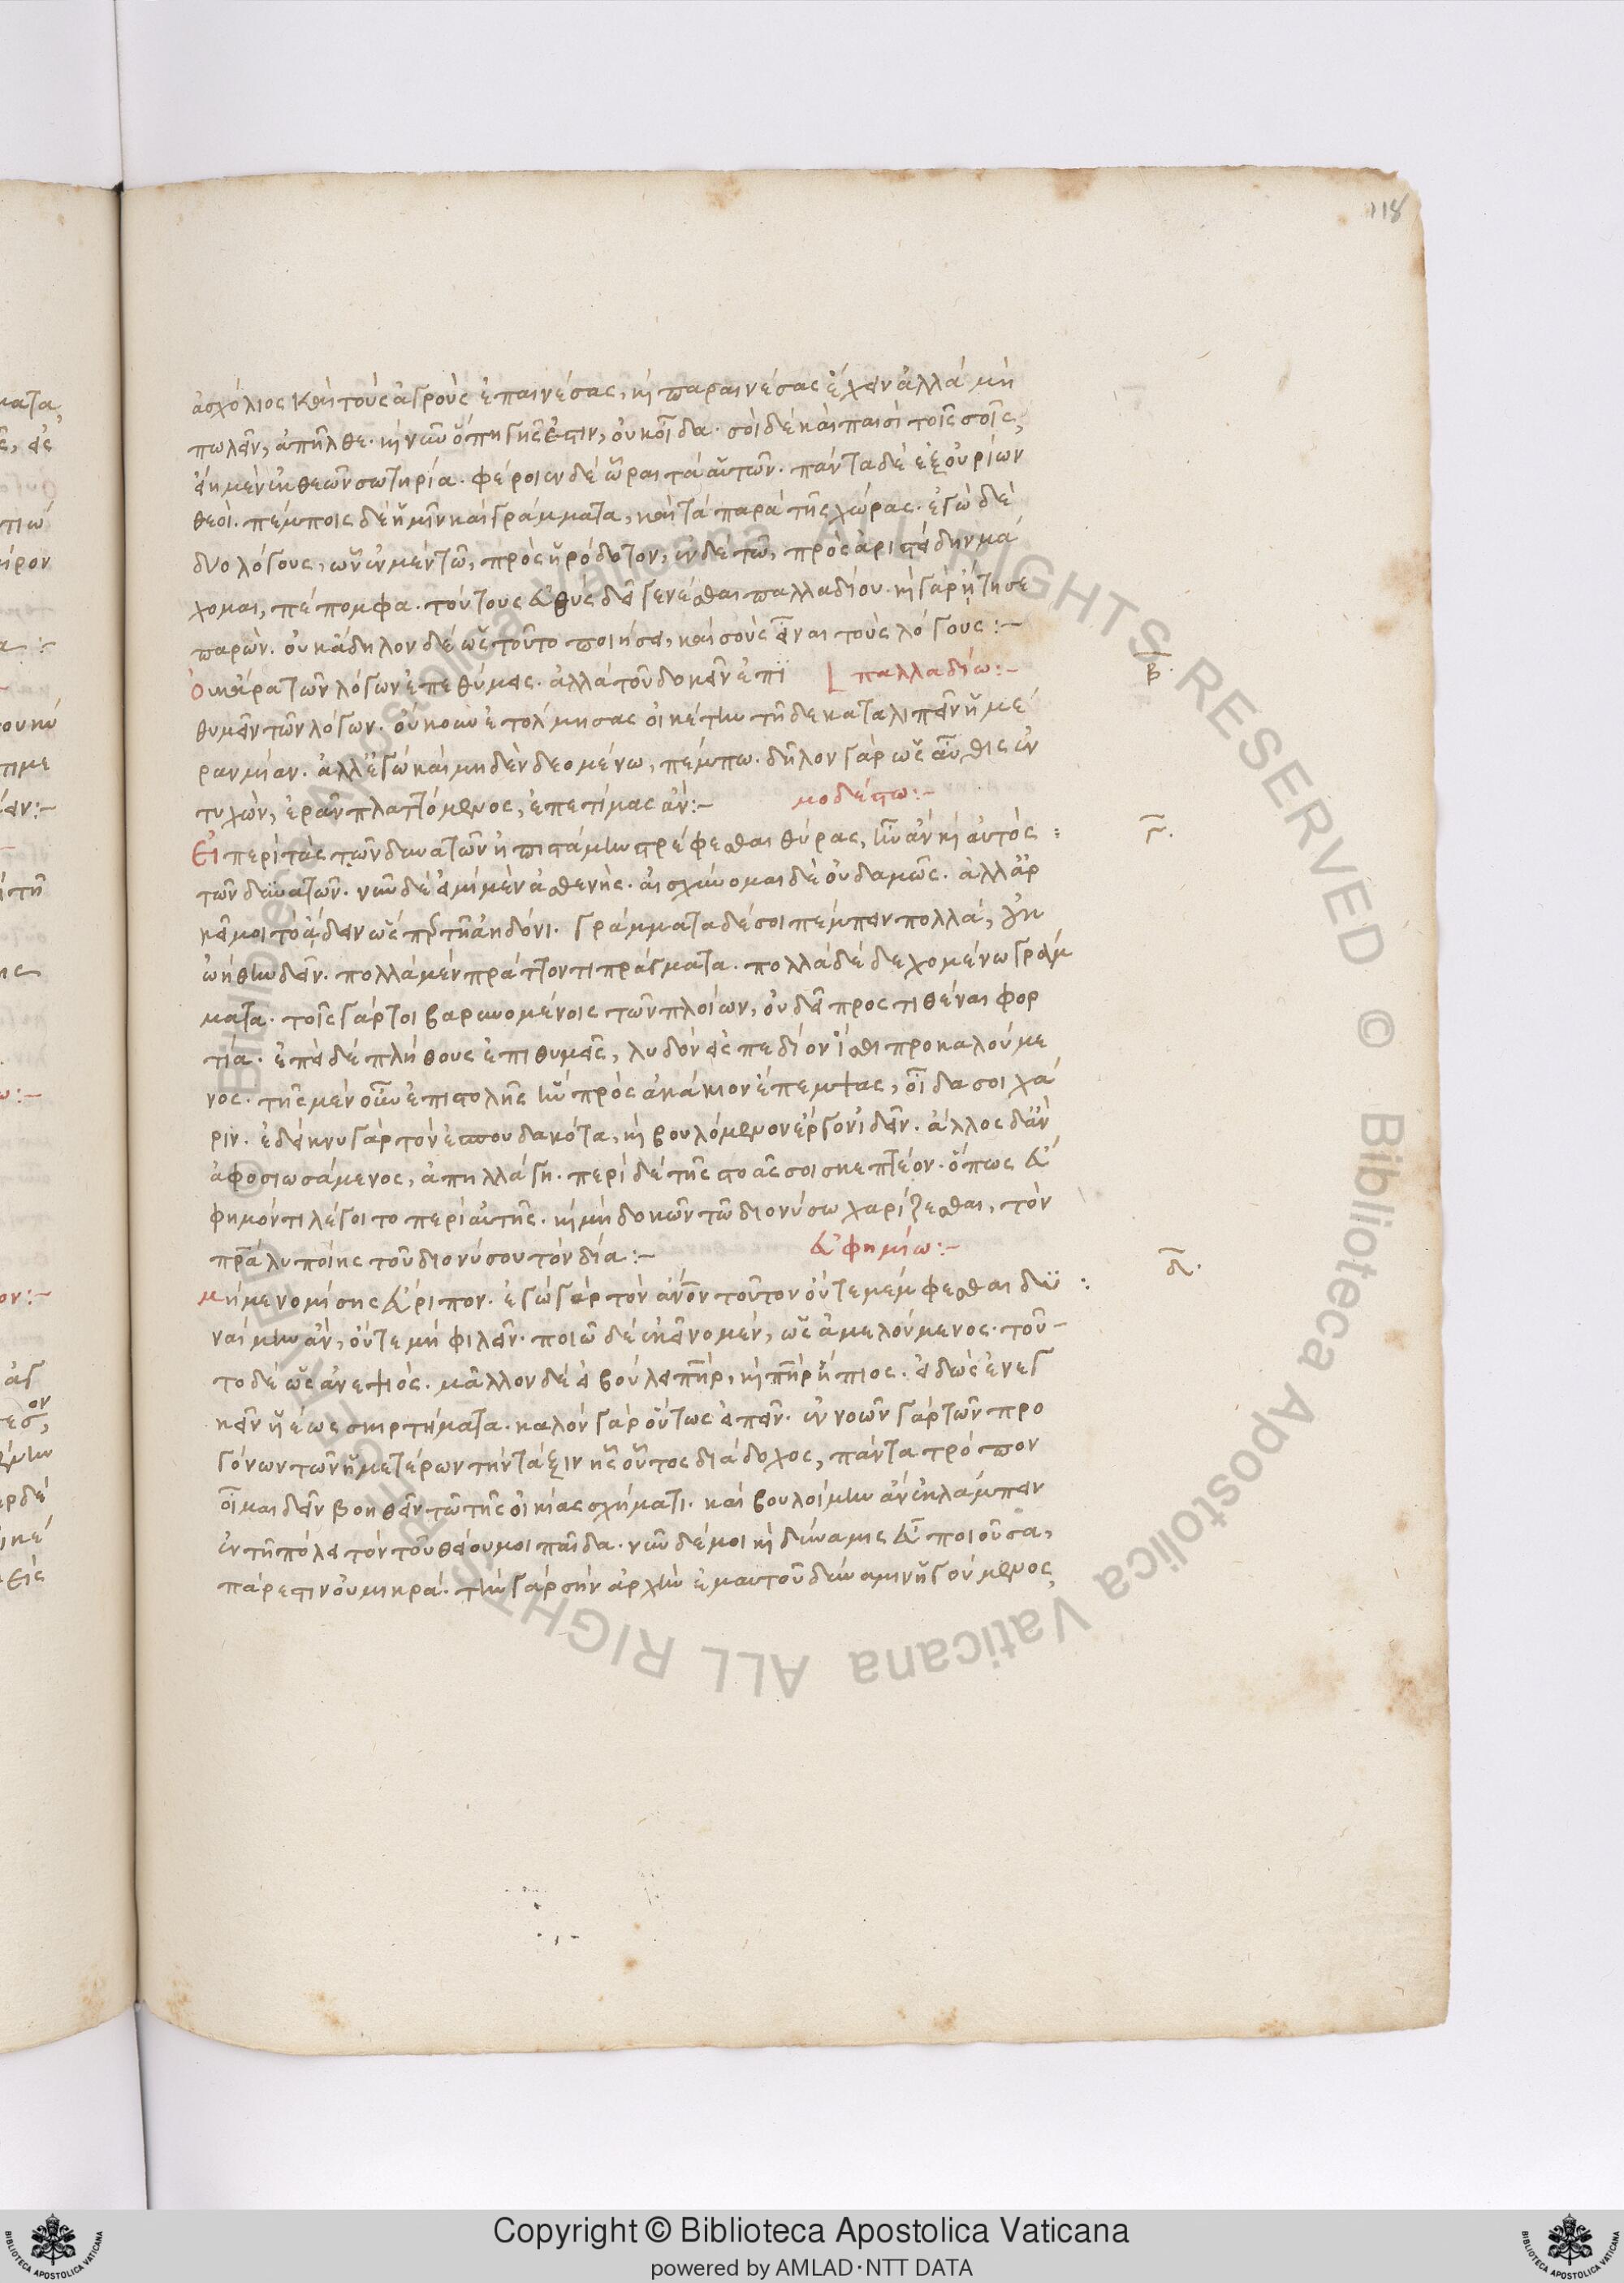 118
ἀσχόλιος καὶ τοὺς ἀγροὺς ἐπαινέσας, καὶ παραινέσας ἔχειν ἀλλὰ μὴ
πωλεῖν, ἀπῆλθε. καὶ νῦν ὅπη γῆς ἐστιν, οὐκ οἶδα. σοὶ δὲ καὶ πᾶσι τοῖς σοῖς,
εἴη μὲν ἐκ θεῶν σωτηρία. φέροιεν δὲ ὧραι τὰ αὑτῶν. πάντα δὲ ἐξ οὐρίων
θεοί. πέμποις δὲ ἡμῖν καὶ γράμματα, καὶ τὰ παρὰ τῆς χώρας. ἐγὼ δὲ
δύο λόγους, ὧν ἐν μὲν τῷ, πρὸς ἡρόδοτον, ἐν δὲ τῷ, πρὸς ἀριστείδην μά
χομαι, πέπομφα. τούτους εὐθὺς δεῖ γενέσθαι παλλαδίου. καὶ γὰρ ᾔτησε
παρών. οὐκ ἄδηλον δὲ ὡς τοῦτο ποιήσει, καὶ σοὺς εἶναι τοὺς λόγους :-
Οὐκ ἄρα τῶν λόγων ἐπεθύμεις. ἀλλὰ τοῦ δοκεῖν ἐπι παλλαδίω :- β.
θυμεῖν τῶν λόγων. οὔκουν ἐτόλμησας οἰκέτην τῇδε καταλιπεῖν ἡμέ
ραν μίαν. ἀλλ' ἐγὼ καὶ μηδὲν δεομένω, πέμπω. δῆλον γὰρ ὡς αὖθις ἐν
τυχὼν, ἐρᾶν πλαττόμενος, ἐπετίμας ἄν :- μοδέστω :-
Εἰ περὶ τὰς τῶν δυνατῶν ἠπιστάμην στρέφεσθαι θύρας, ἦν ἂν καὶ αὐτὸς : γ.
τῶν δυνατῶν. νῦν δὲ εἰμὶ μὲν ἀσθενής. αἰσχύνομαι δὲ οὐδαμῶς. ἀλλ' ἀρ
κεῖ μοι τὸ ἄδειν ὥσπερ τῇ ἀηδόνι. γράμματα δέ σοι πέμπειν πολλά, οὐκ
ὠήθην δεῖν. πολλὰ μὲν πράττοντι πράγματα. πολλὰ δὲ δεχομένω γράμ
ματα. τοῖς γάρ τοι βαρυνομένοις τῶν πλοίων, οὐ δεῖ προστιθέναι φορ
τία. ἐπεὶ δὲ πλήθους ἐπιθυμεῖς, λυδὸν εἰς πεδίον ἴσθι προκαλούμε
νος. τῆς μὲν οὖν ἐπιστολῆς ἣν πρὸς ἀκάκιον ἔπεμψας, οἶδά σοι χά
ριν. ἐδείκνυ γὰρ τὸν ἐσπουδακότα, καὶ βουλόμενον ἔργον ἰδεῖν. ἄλλος δ' ἂν
ἀφοσιωσάμενος, ἀπηλλάγη. περὶ δὲ τῆς στοᾶς σοι σκεπτέον. ὅπως εὔ
φημόν τι λέγοιτο περὶ αὐτῆς. καὶ μὴ δοκῶν τῷ διονύσω χαρίζεσθαι, τὸν
πρα λυποίης τοῦ διονύσου τὸν δία :- εὐφημίω :- δ.
Μή με νομίσης εὔριπον. ἐγὼ γὰρ τὸν ανον τοῦτον οὔτε μέμφεσθαι δυ :
ναίμην ἂν, οὔτε μὴ φιλεῖν. ποιῶ δὲ ἐκεῖνο μὲν, ὡς ἀμελούμενος. τοῦ-
το δὲ ὡς ἀνεψιός. μᾶλλον δὲ εἰ βούλει πηρ, καὶ πηρ ἤπιος. εἰδὼς ἐνεγ
κεῖν ἡέως σκιρτήματα. καλὸν γὰρ οὕτως εἰπεῖν. ἐννοῶν γὰρ τῶν προ
γόνων τῶν ἡμετέρων τὴν τάξιν ἧς οὗτος διάδοχος, πάντα τρόπον
οἶμαι δεῖν βοηθεῖν τῷ τῆς οἰκίας σχήματι. καὶ βουλοίμην ἂν ἐκλάμπειν
ἐν τῇ πόλει τὸν τοῦ θείου μοι παῖδα. νῦν δέ μοι καὶ δύναμις εὖ ποιοῦσα,
πάρεστιν οὐ μικρά. τὴν γὰρ σὴν ἀρχὴν ἐμαυτοῦ δύναμιν ἡγούμενος,
Copyright © Biblioteca Apostolica Vaticana
powered by AMLAD·NTT DATA